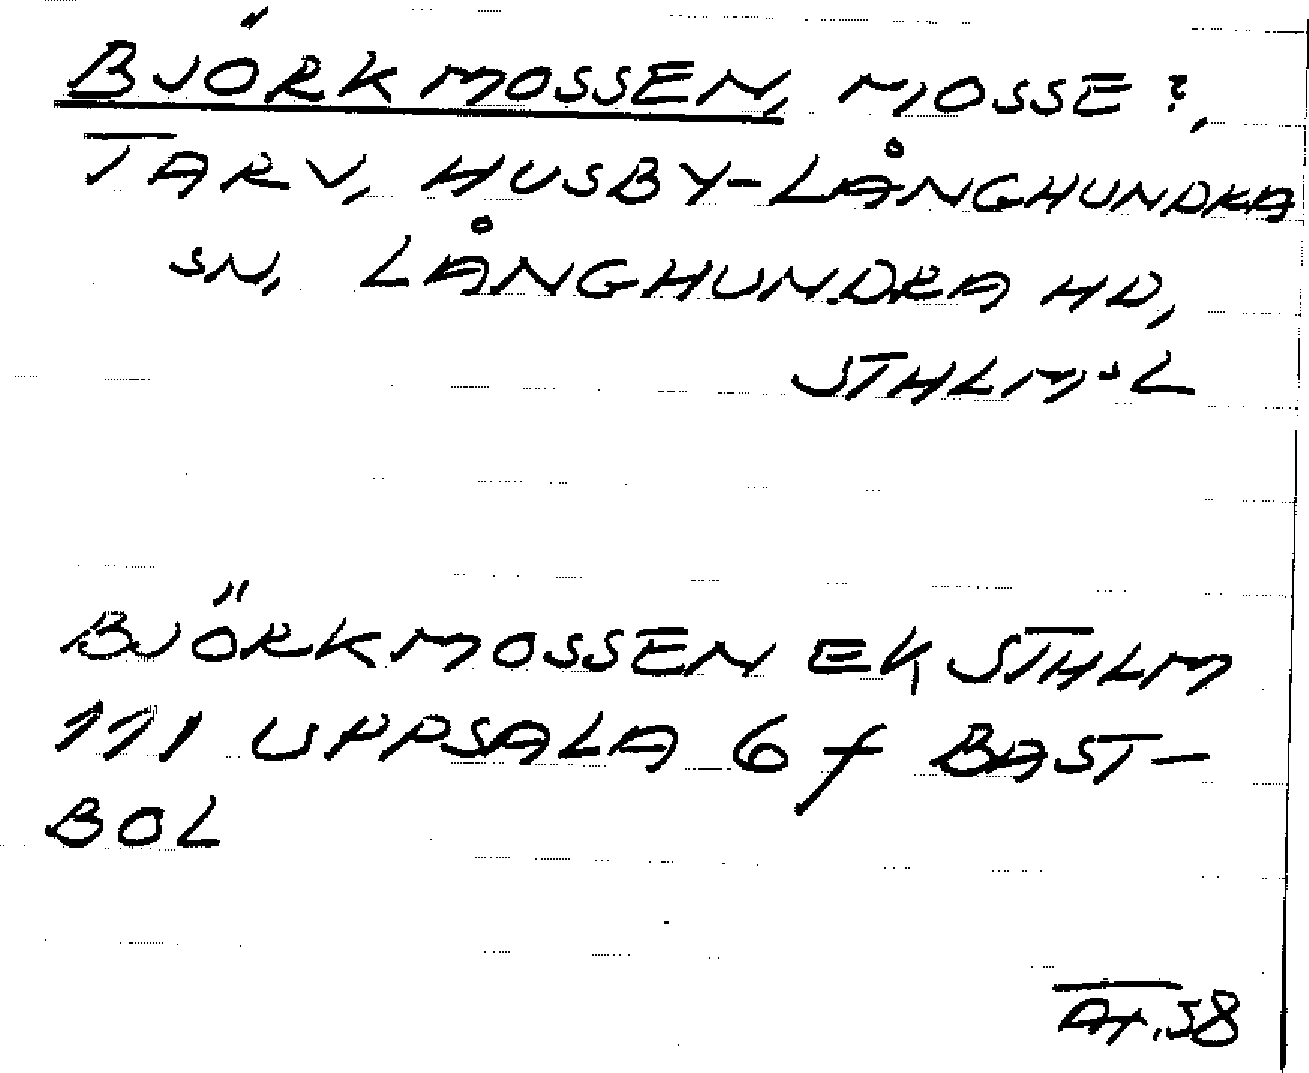 BJÖRKMOSSEN, MOSSE?,
TARV, HUSBY-LÅNGHUNDRA
SN, LÅNGHUNDRA HD,
STHLM-L
BJÖRKMOSSEN EK STHLM
111 UPPSALA 6 f BAST-
BOL
AH.58